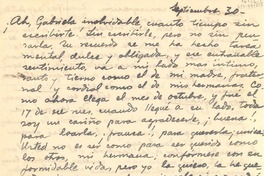 Septiembre 30
¡Ah, Gabriela inolvidable cuanto tiempo sin
escribirte sin escribirle, pero no sin pen-
sarla. Su recuerdo se me ha hecho tarea
mental dulce y obligada, y ese entrañable
sentimiento, va a mi lado mas intimo,
santo, tierno como el de mi madre, frater-
nal y cordial como el de mis hermanas. Co-
mo ahora llega el mes de octubre, y fué el
17 de ese mes, cuando llegué a su lado, toda
soy un cariño para agradecerle, ¡buena!,
para loarla, ¡francia!, para quererla, ¡unica!
Usted no es ser como para ser querido como
los otros, mi hermana, conformese con su
formidable vida, pero yo la quiero, la he que